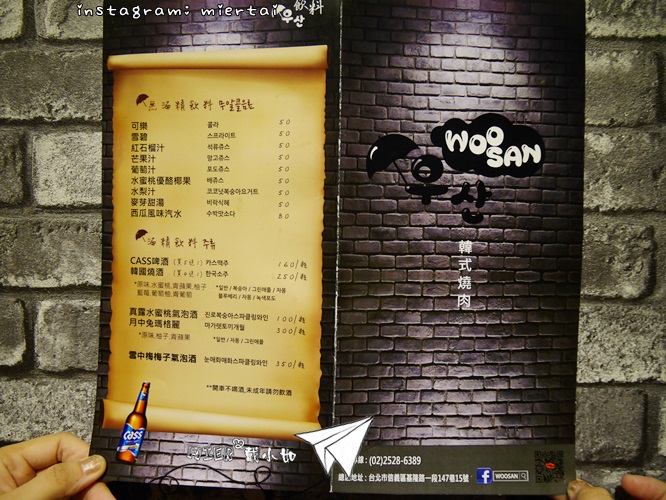 instagram: miertai
飲料
우산
無酒精飲料 무알콜음료
可樂 콜라 50
雪碧 스프라이트 50
紅石榴汁 석류쥬스 50
芒果汁 망고쥬스 50
葡萄汁 포도쥬스 50
水蜜桃優酪椰果 배쥬스 50
水梨汁 코코넛복숭아요거트 50
麥芽甜湯 비락식혜 50
西瓜風味汽水 수박맛소다 80
酒精飲料 주류
CASS啤酒 (買5送1) 카스맥주 160/瓶
韓國燒酒 (買4送1) 한국소주 250/瓶
*原味,水蜜桃,青蘋果,柚子 *일반 / 복숭아 / 그린애플 / 자몽
藍莓,葡萄柚,青葡萄 블루베리 / 자몽 / 녹색포도
真露水蜜桃氣泡酒 진로복숭아스파클링와인 100/瓶
月中兔瑪格麗 마가렛토끼개월 300/瓶
*原味,柚子,青蘋果 *일반 / 자몽 / 그린애플
雪中梅梅子氣泡酒 눈매화매화스파클링와인 350/瓶
**開車不喝酒,未成年請勿飲酒
Cass
MIER 戴小甜
WOO
SAN
우산
韓式燒肉
線 : (02)2528-6389
總店地址 : 台北市信義區基隆路一段147巷15號
f WOOSAN